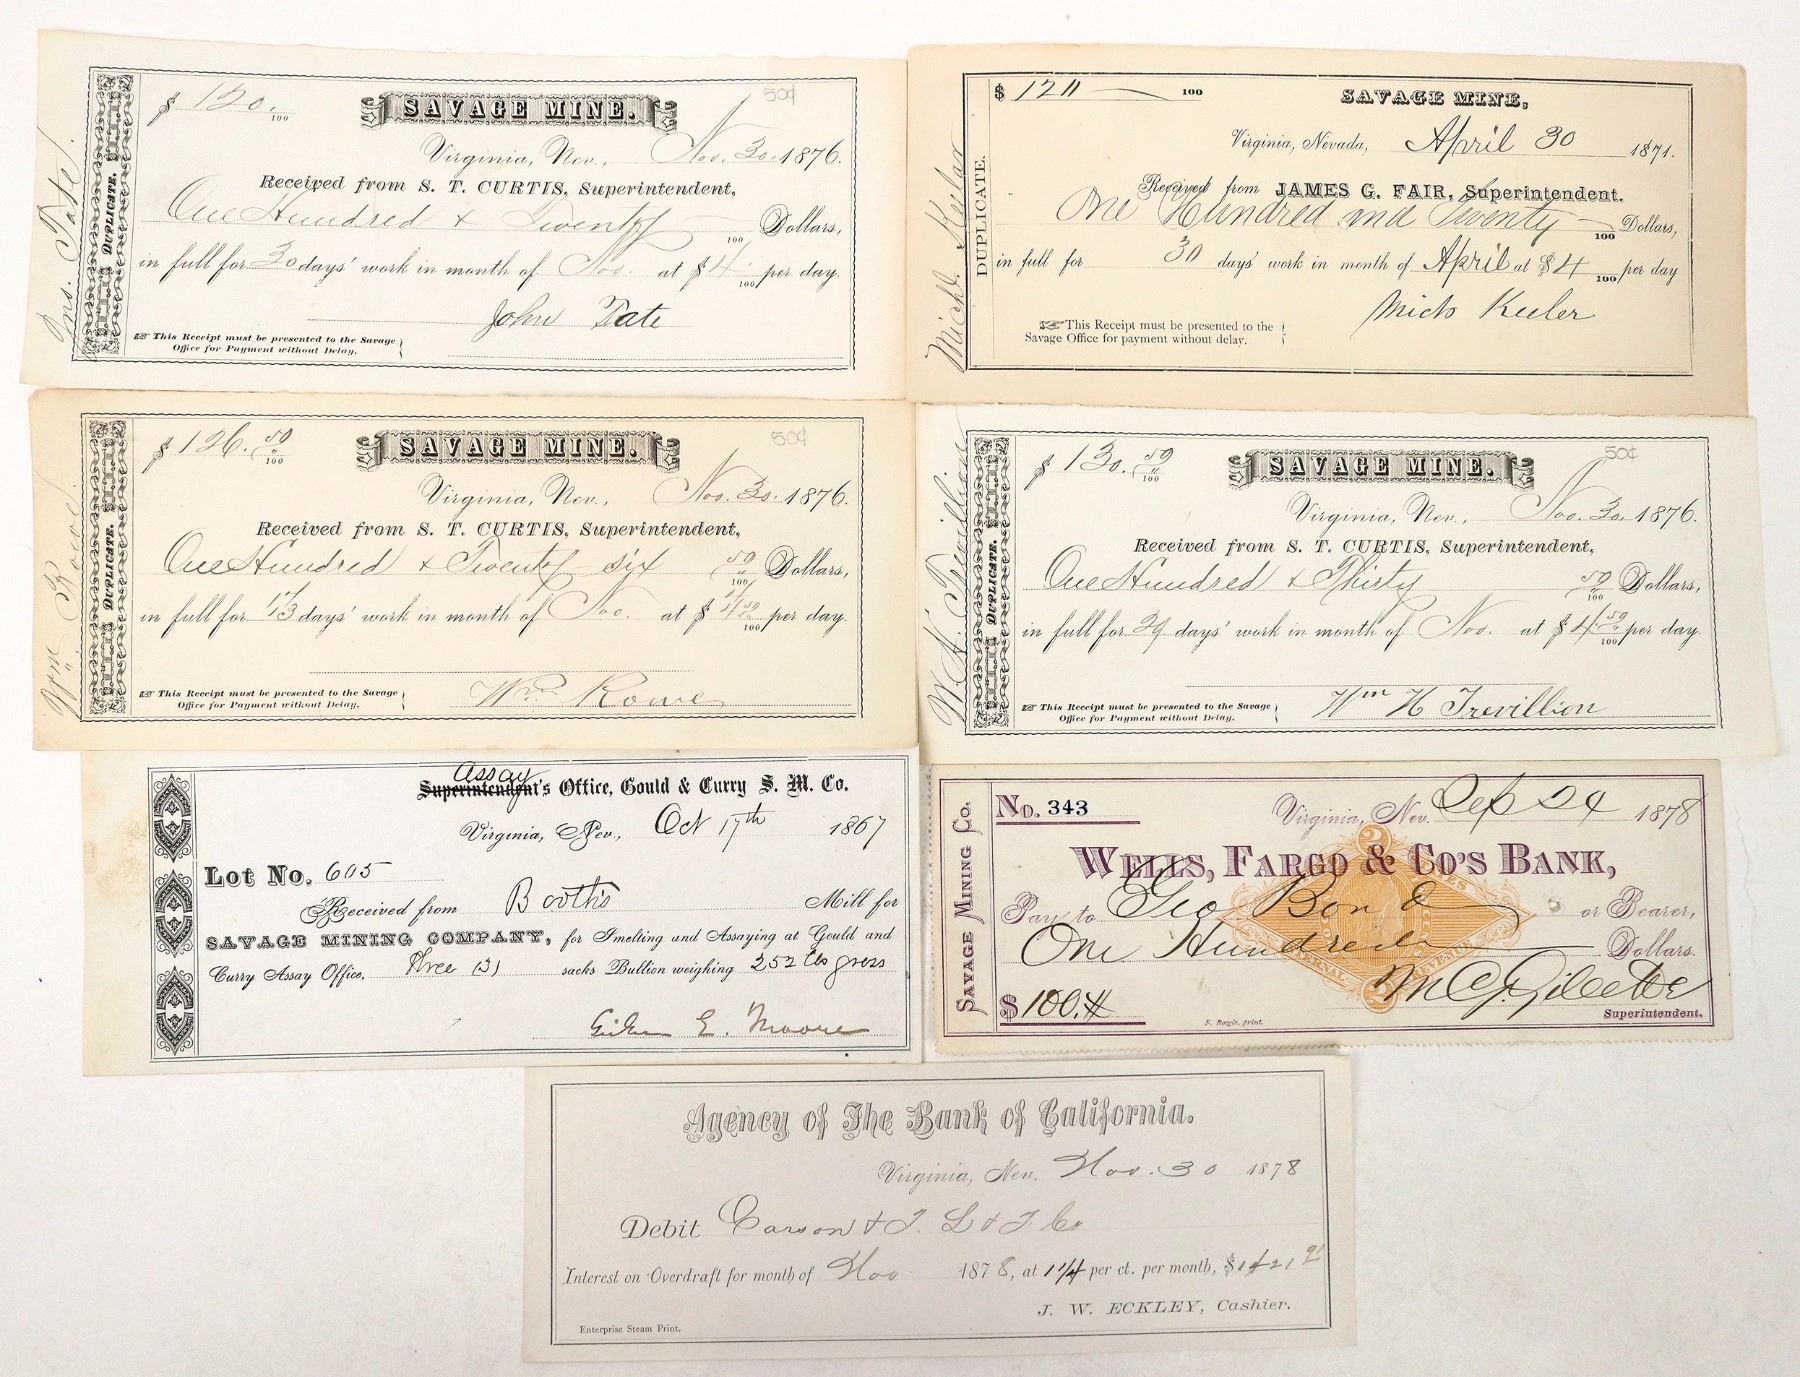 $ 120. 100
SAVAGE MINE.
50¢
Virginia, Nev., Nov. 30. 1876.
Received from S. T. CURTIS, Superintendent,
One Hundred & Twenty 100 Dollars,
in full for 30 days' work in month of Nov. at $4 100 per day.
John Tate
This Receipt must be presented to the Savage
Office for Payment without Delay.
DUPLICATE.
Jno. Tate.
$ 120 100
SAVAGE MINE,
Virginia, Nevada, April 30 1871.
Received from JAMES G. FAIR, Superintendent.
One Hundred and Twenty 100 Dollars,
in full for 30 days' work in month of April at $4 100 per day
Mich Keeler
This Receipt must be presented to the
Savage Office for payment without delay.
DUPLICATE.
Michl. Keeler
$ 126. 50/100
SAVAGE MINE.
50¢
Virginia, Nev., Nov. 30. 1876.
Received from S. T. CURTIS, Superintendent,
One Hundred & Twenty six 50/100 Dollars,
in full for days' work in month of Nov. at $ 4 50/100 per day.
Wm Rowe
This Receipt must be presented to the Savage
Office for Payment without Delay.
DUPLICATE.
Wm Rowe.
$ 130. 50/100
SAVAGE MINE.
50¢
Virginia, Nev., Nov. 30. 1876.
Received from S. T. CURTIS, Superintendent,
One Hundred & Thirty 50/100 Dollars,
in full for 29 days' work in month of Nov. at $4. 50/100 per day.
Wm H Trevillion
This Receipt must be presented to the Savage
Office for Payment without Delay.
DUPLICATE.
W. H. Trevillion
Assay
Superintendent's Office, Gould & Curry S. M. Co.
Virginia, Nev., Oct 17th 1867
Lot No. 605
Received from Booth's Mill for
SAVAGE MINING COMPANY, for Smelting and Assaying at Gould and
Curry Assay Office, Three (3) sacks Bullion weighing 252 lbs gross
E. Moore
SAVAGE MINING CO.
No. 343
Virginia, Nev. Sep 24 1878
WELLS, FARGO & CO'S BANK,
Pay to Geo Bond or Bearer,
One Hundred Dollars.
$ 100.
Superintendent.
F. Boegle, print.
2
INTERNAL REVENUE
2
Agency of The Bank of California.
Virginia, Nev. Nov. 30 1878
Debit Carson & T. L & F. Co
Interest on Overdraft for month of Nov 1878, at 1 1/4 per ct. per month, $1421
J. W. ECKLEY, Cashier.
Enterprise Steam Print.